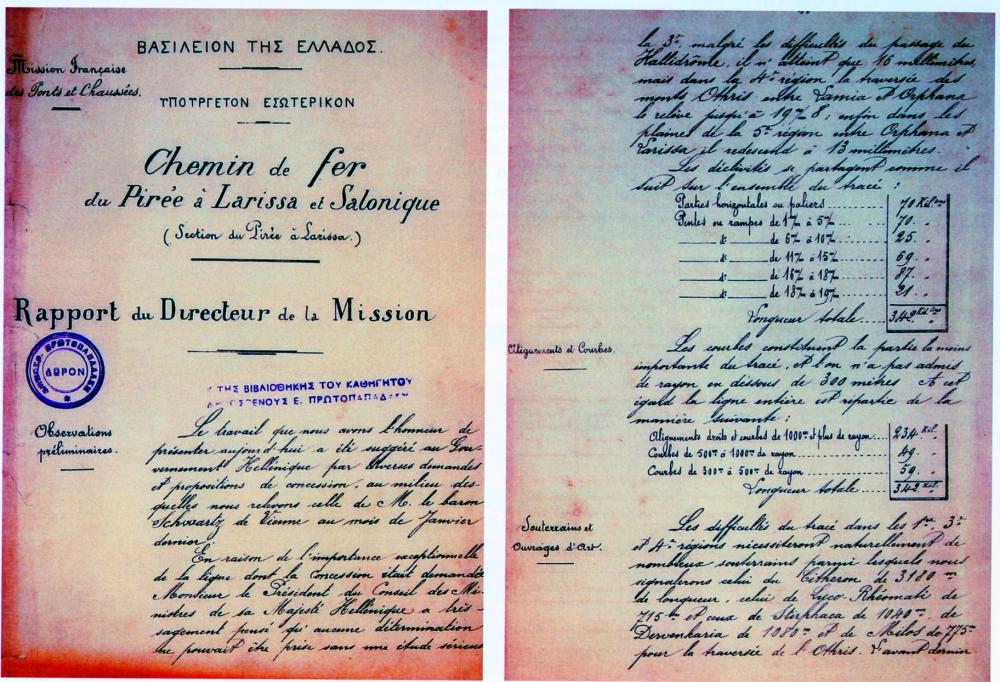 ΒΑΣΙΛΕΙΟΝ ΤΗΣ ΕΛΛΑΔΟΣ.
Mission Française
des Ponts et Chaussées.
ΥΠΟΥΡΓΕΤΟΝ ΕΣΩΤΕΡΙΚΟΝ
Chemin de fer
du Pirée à Larissa et Salonique
(Section du Pirée à Larissa.)
Rapport du Directeur de la Mission
ΠΡΩΤΟΠΑΠΑΔΑΚΗ
ΔΩΡΟΝ
ΤΗΣ ΒΙΒΛΙΟΘΗΚΗΣ ΤΟΥ ΚΑΘΗΓΗΤΟΥ
ΣΘΕΝΟΥΣ Ε. ΠΡΩΤΟΠΑΠΑΔΑΚΗ
Observations
préliminaires.
Le travail que nous avons l'honneur de
présenter aujourd'hui a été suggéré au Gou-
vernement Hellénique par diverses demandes
et propositions de concession, au milieu des-
quelles nous relevons celle de M. le baron
Schwartz de Vienne au mois de Janvier
dernier.
En raison de l'importance exceptionnelle
de la ligne dont la Concession était demandée
Monsieur le Président du Conseil des Mi-
nistres de sa Majesté Hellénique a très-
sagement pensé qu'aucune détermination
ne pouvait être prise sans une étude sérieuse
la 3e, malgré les difficultés du passage du
Hallidrôme, il n'atteint que 16 millimètres,
mais dans la 4e région la traversée des
monts Othris entre Lamia et Orphana
le relève jusqu'à 19m/m 8; enfin dans les
plaines de la 5e région entre Orphana et
Larissa il redescend à 13 millimètres.
Les déclivités se partagent comme il
suit sur l'ensemble du tracé :
Parties horizontales ou paliers 70 Kil.
Pentes ou rampes de 1m/m à 5m/m 70. "
d° de 6m/m à 10m/m 25. "
d° de 11m/m à 15m/m 69. "
d° de 16m/m à 18m/m 87. "
d° de 18m/m à 19m/m 21. "
Longueur totale 342 Kil.
Alignements et Courbes.
Les courbes constituent la partie la moins
importante du tracé, et l'on n'a pas admis
de rayon en dessous de 300 mètres. A cet
égard la ligne entière est répartie de la
manière suivante :
Alignements droits et courbes de 1000m et plus de rayon 234 Kil.
Courbes de 500m à 1000m de rayon 49. "
Courbes de 300m à 500m de rayon 59. "
Longueur totale 342 Kil.
Souterrains et
Ouvrages d'Art.
Les difficultés du tracé dans les 1re, 3e
et 4e régions nécessiteront naturellement de
nombreux souterrains parmi lesquels nous
signalerons celui du Citheron de 3180m
de longueur, celui de Lyco-Rhéomati de
715m et ceux de Stirphaca de 1040m, de
Dervenkaria de 1080m et de Mélos de 775m
pour la traversée de l'Othris. L'avant dernier